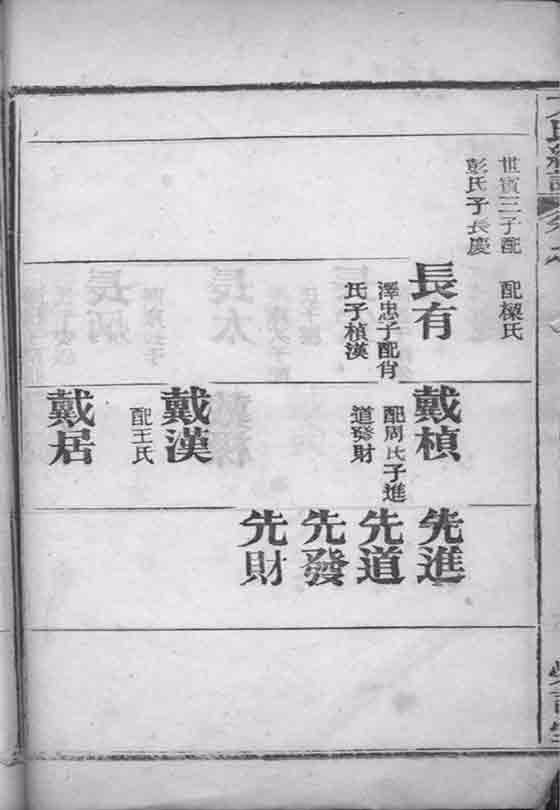 世賓三子配
彭氏子長慶
配樑氏
長有
澤忠子配肖
氏子楨漢
戴楨
配周氏子進
道發財
戴漢
配王氏
戴居
先進
先道
先發
先財